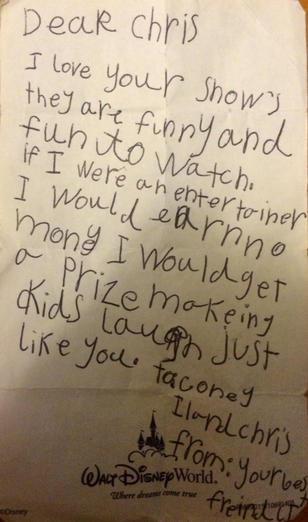 Dear Chris
I love your show's
they are funny and
fun to watch.
if I were an entertainer
I would earn no
mony I would get
a prize makeing
kids laugh just
like you.
taconey
Iland chris
from: your best
freind
WALT DISNEY World.
Where dreams come true
©Disney